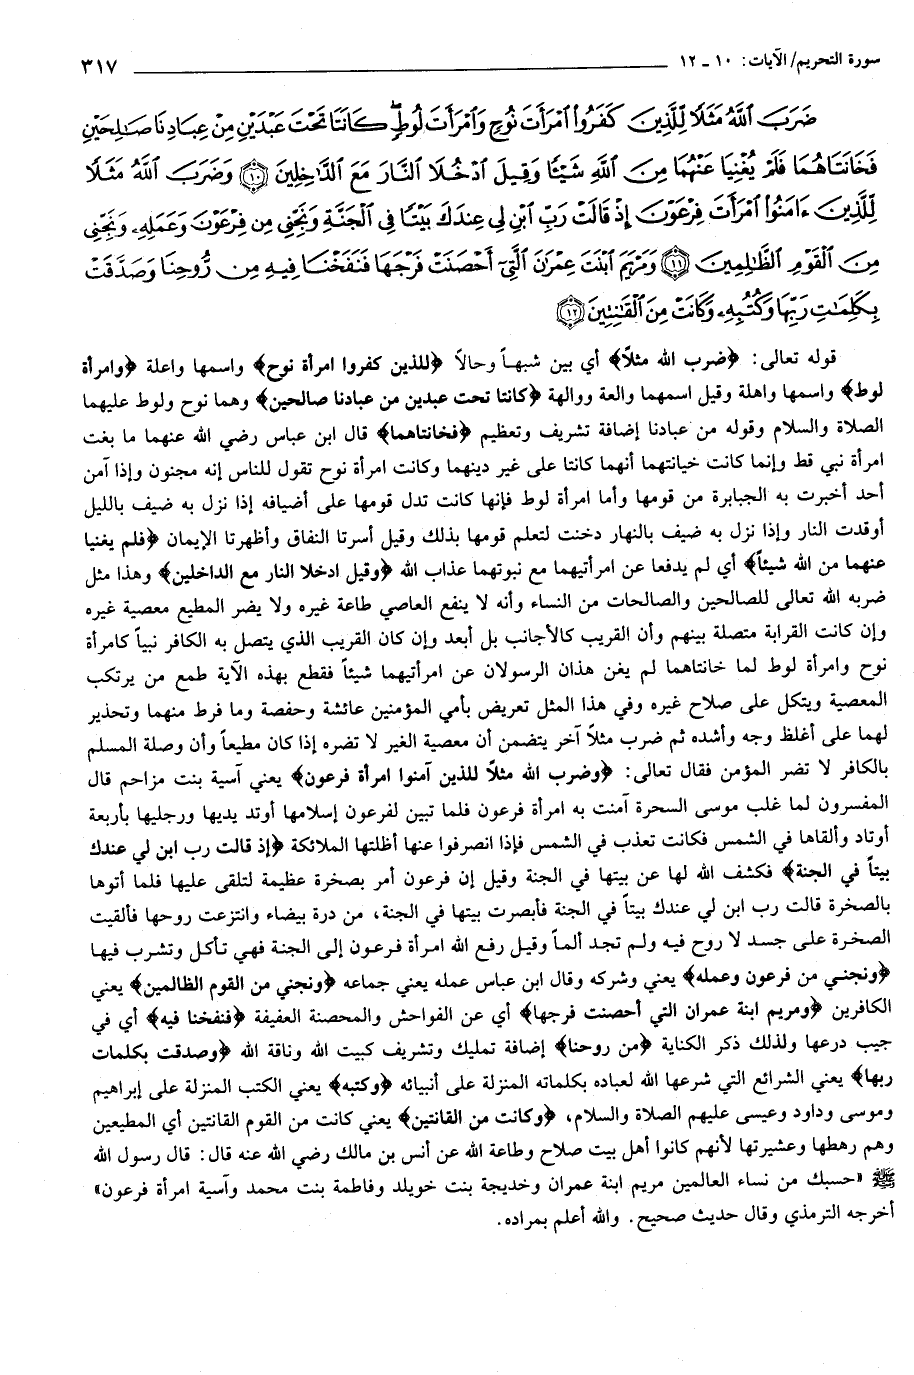 سورة التحريم/ الآيات: ١٠ ـ ١٢ ٣١٧
ضَرَبَ ٱللَّهُ مَثَلًا لِّلَّذِينَ كَفَرُوا۟ ٱمْرَأَتَ نُوحٍ وَٱمْرَأَتَ لُوطٍۖ كَانَتَا تَحْتَ عَبْدَيْنِ مِنْ عِبَادِنَا صَـٰلِحَيْنِ
فَخَانَتَاهُمَا فَلَمْ يُغْنِيَا عَنْهُمَا مِنَ ٱللَّهِ شَيْـًٔا وَقِيلَ ٱدْخُلَا ٱلنَّارَ مَعَ ٱلدَّٰخِلِينَ ﴿١٠﴾ وَضَرَبَ ٱللَّهُ مَثَلًا
لِّلَّذِينَ ءَامَنُوا۟ ٱمْرَأَتَ فِرْعَوْنَ إِذْ قَالَتْ رَبِّ ٱبْنِ لِى عِندَكَ بَيْتًا فِى ٱلْجَنَّةِ وَنَجِّنِى مِن فِرْعَوْنَ وَعَمَلِهِۦ وَنَجِّنِى
مِنَ ٱلْقَوْمِ ٱلظَّـٰلِمِينَ ﴿١١﴾ وَمَرْيَمَ ٱبْنَتَ عِمْرَٰنَ ٱلَّتِىٓ أَحْصَنَتْ فَرْجَهَا فَنَفَخْنَا فِيهِ مِن رُّوحِنَا وَصَدَّقَتْ
بِكَلِمَـٰتِ رَبِّهَا وَكُتُبِهِۦ وَكَانَتْ مِنَ ٱلْقَـٰنِتِينَ ﴿١٢﴾
قوله تعالى: ﴿ضرب الله مثلاً﴾ أي بين شبهاً وحالاً ﴿للذين كفروا امرأة نوح﴾ واسمها واعلة ﴿وامرأة
لوط﴾ واسمها واهلة وقيل اسمهما والعة ووالهة ﴿كانتا تحت عبدين من عبادنا صالحين﴾ وهما نوح ولوط عليهما
الصلاة والسلام وقوله من عبادنا إضافة تشريف وتعظيم ﴿فخانتاهما﴾ قال ابن عباس رضي الله عنهما ما بغت
امرأة نبي قط وإنما كانت خيانتهما أنهما كانتا على غير دينهما وكانت امرأة نوح تقول للناس إنه مجنون وإذا آمن
أحد أخبرت به الجبابرة من قومها وأما امرأة لوط فإنها كانت تدل قومها على أضيافه إذا نزل به ضيف بالليل
أوقدت النار وإذا نزل به ضيف بالنهار دخنت لتعلم قومها بذلك وقيل أسرتا النفاق وأظهرتا الإيمان ﴿فلم يغنيا
عنهما من الله شيئاً﴾ أي لم يدفعا عن امرأتيهما مع نبوتهما عذاب الله ﴿وقيل ادخلا النار مع الداخلين﴾ وهذا مثل
ضربه الله تعالى للصالحين والصالحات من النساء وأنه لا ينفع العاصي طاعة غيره ولا يضر المطيع معصية غيره
وإن كانت القرابة متصلة بينهم وأن القريب كالأجانب بل أبعد وإن كان القريب الذي يتصل به الكافر نبياً كامرأة
نوح وامرأة لوط لما خانتاهما لم يغن هذان الرسولان عن امرأتيهما شيئاً فقطع بهذه الآية طمع من يرتكب
المعصية ويتكل على صلاح غيره وفي هذا المثل تعريض بأمي المؤمنين عائشة وحفصة وما فرط منهما وتحذير
لهما على أغلظ وجه وأشده ثم ضرب مثلاً آخر يتضمن أن معصية الغير لا تضره إذا كان مطيعاً وأن وصلة المسلم
بالكافر لا تضر المؤمن فقال تعالى: ﴿وضرب الله مثلاً للذين آمنوا امرأة فرعون﴾ يعني آسية بنت مزاحم قال
المفسرون لما غلب موسى السحرة آمنت به امرأة فرعون فلما تبين لفرعون إسلامها أوتد يديها ورجليها بأربعة
أوتاد وألقاها في الشمس فكانت تعذب في الشمس فإذا انصرفوا عنها أظلتها الملائكة ﴿إذ قالت رب ابن لي عندك
بيتاً في الجنة﴾ فكشف الله لها عن بيتها في الجنة وقيل إن فرعون أمر بصخرة عظيمة لتلقى عليها فلما أتوها
بالصخرة قالت رب ابن لي عندك بيتاً في الجنة فأبصرت بيتها في الجنة، من درة بيضاء وانتزعت روحها فألقيت
الصخرة على جسد لا روح فيه ولم تجد ألماً وقيل رفع الله امرأة فرعون إلى الجنة فهي تأكل وتشرب فيها
﴿ونجني من فرعون وعمله﴾ يعني وشركه وقال ابن عباس عمله يعني جماعه ﴿ونجني من القوم الظالمين﴾ يعني
الكافرين ﴿ومريم ابنة عمران التي أحصنت فرجها﴾ أي عن الفواحش والمحصنة العفيفة ﴿فنفخنا فيه﴾ أي في
جيب درعها ولذلك ذكر الكناية ﴿من روحنا﴾ إضافة تمليك وتشريف كبيت الله وناقة الله ﴿وصدقت بكلمات
ربها﴾ يعني الشرائع التي شرعها الله لعباده بكلماته المنزلة على أنبيائه ﴿وكتبه﴾ يعني الكتب المنزلة على إبراهيم
وموسى وداود وعيسى عليهم الصلاة والسلام، ﴿وكانت من القانتين﴾ يعني كانت من القوم القانتين أي المطيعين
وهم رهطها وعشيرتها لأنهم كانوا أهل بيت صلاح وطاعة الله عن أنس بن مالك رضي الله عنه قال: قال رسول الله
ﷺ «حسبك من نساء العالمين مريم ابنة عمران وخديجة بنت خويلد وفاطمة بنت محمد وآسية امرأة فرعون»
أخرجه الترمذي وقال حديث صحيح. والله أعلم بمراده.